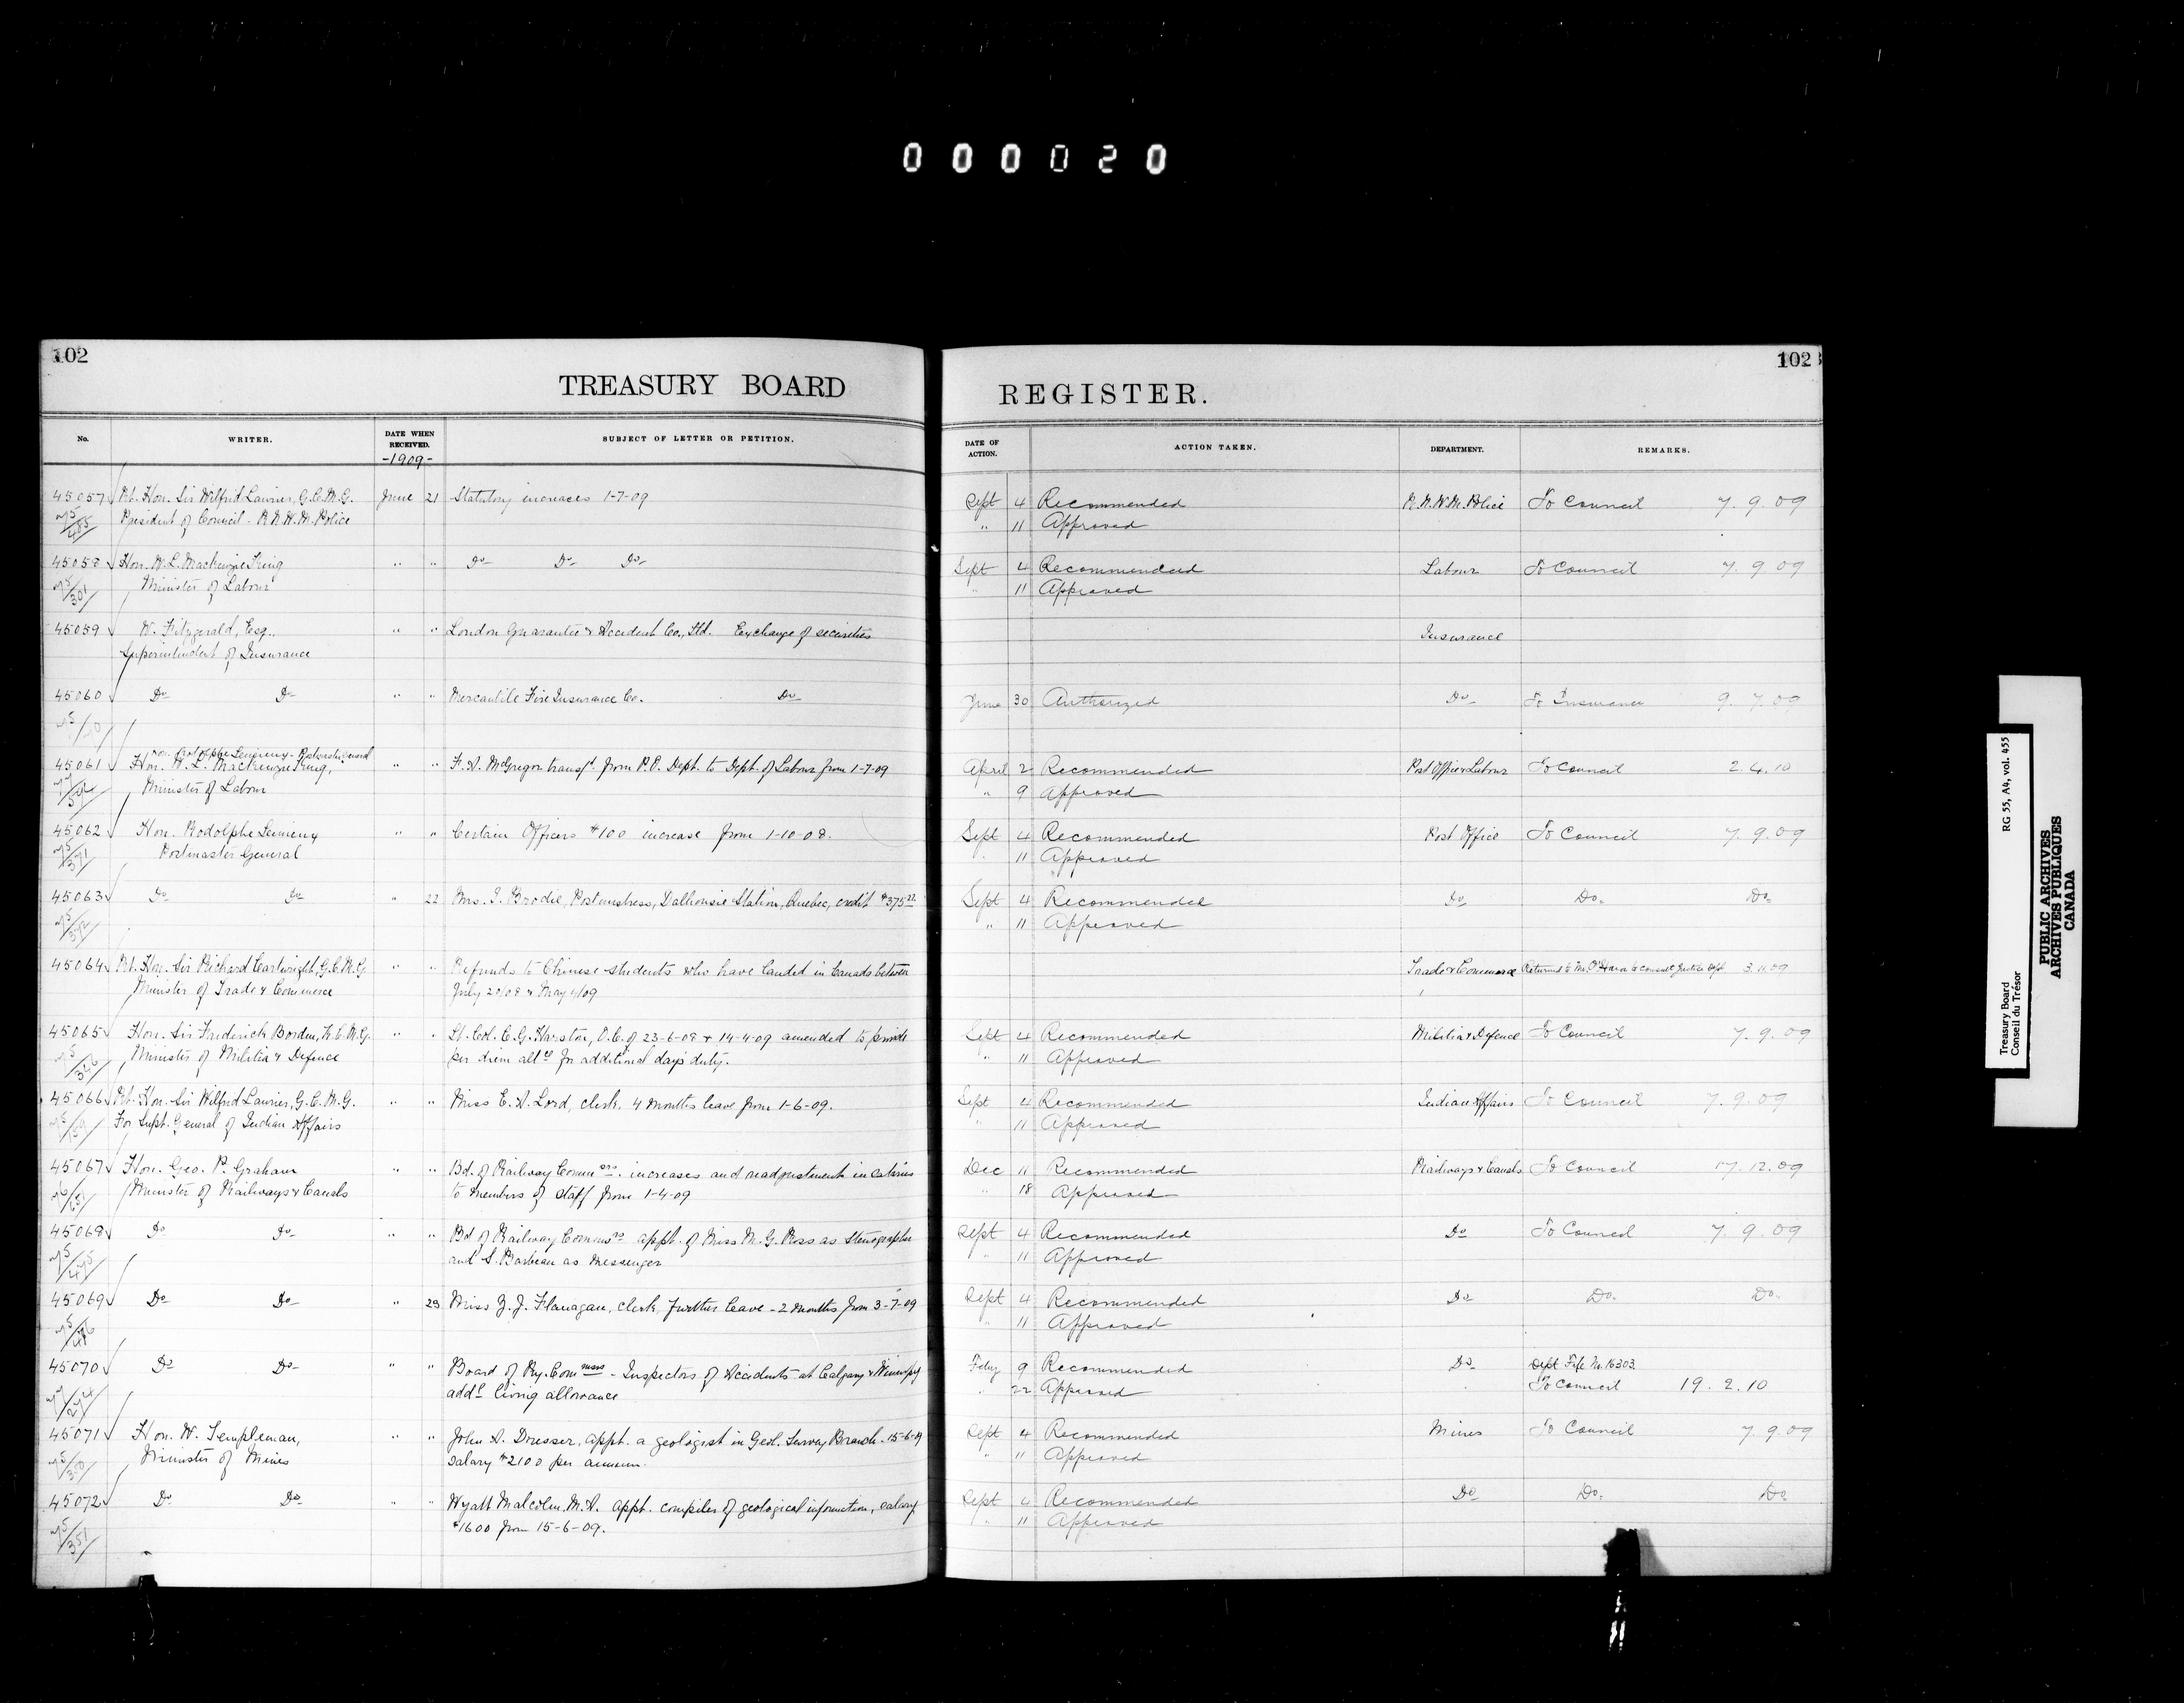 000020
102
TREASURY BOARD
REGISTER.
102
No.
WRITER.
DATE WHEN RECEIVED.
-1909-
SUBJECT OF LETTER OR PETITION.
DATE OF ACTION.
ACTION TAKEN.
DEPARTMENT.
REMARKS.
45057 Rt. Hon. Sir Wilfrid Laurier, G.C.M.G. June 21 Statutory increases 1-7-09 Sept 4 Recommended R.N.W.M. Police To Council 7.9.09
President of Council - R.N.W.M. Police " 11 Approved
45058 Hon. W.L. Mackenzie King " " Do Do Do Sept 4 Recommended Labour To Council 7.9.09
301 Minister of Labour " 11 Approved
45059 W. Fitzgerald, Esq., " " London Guarantee & Accident Co., Ltd. Exchange of securities Insurance
Superintendent of Insurance
45060 Do Do " " Mercantile Fire Insurance Co. Do June 30 Authorized Do To Insurance 9.7.09
Hon. Rodolphe Lemieux - Postmaster General
45061 Hon. W.L. Mackenzie King, " " F.A. McGregor transfd. from P.O. Dept. to Dept. of Labour from 1-7-09 April 2 Recommended Post Office & Labour To Council 2.4.10
Minister of Labour " 9 Approved
45062 Hon. Rodolphe Lemieux " " Certain Officers $100 increase from 1-10-08. Sept 4 Recommended Post Office To Council 7.9.09
Postmaster General " 11 Approved
45063 Do Do " 22 Mrs. I. Brodie, Postmistress, Dalhousie Station, Quebec, credit $375 Sept 4 Recommended Do Do. Do
" 11 Approved
45064 Rt. Hon. Sir Richard Cartwright, G.C.M.G. " " Refunds to Chinese students who have landed in Canada between Trade & Commerce Returned to Mr. O'Hara to consult Justice Dept 3.11.09
Minister of Trade & Commerce July 20/08 & May 4/09
45065 Hon. Sir Frederick Borden, K.C.M.G. " " Lt. Col. C.G. Harston, O.C. of 23-6-08 & 14-4-09 amended to provide Sept 4 Recommended Militia & Defence To Council 7.9.09
Minister of Militia & Defence per diem allce for additional days duty. " 11 Approved
45066 Rt. Hon. Sir Wilfrid Laurier, G.C.M.G. " " Miss E.A. Lord, clerk, 4 months leave from 1-6-09. Sept 4 Recommended Indian Affairs To Council 7.9.09
For Supt. General of Indian Affairs " 11 Approved
45067 Hon. Geo. P. Graham " " Bd. of Railway Commrs. increases and readjustments in salaries Dec 11 Recommended Railways & Canals To Council 17.12.09
Minister of Railways & Canals to members of staff from 1-4-09 " 18 Approved
45068 Do Do " " Bd of Railway Commrs appt. of Miss M.G. Ross as Stenographer Sept 4 Recommended Do To Council 7.9.09
and S. Barbeau as Messenger " 11 Approved
45069 Do Do " 23 Miss Z.J. Flanagan, clerk, further leave - 2 months from 3-7-09 Sept 4 Recommended Do Do. Do.
" 11 Approved
45070 Do Do " " Board of Ry. Commrs - Inspectors of Accidents at Calgary & Winnipeg Feby 9 Recommended Do Dept File No. 16303.
addl living allowance " 22 Approved To Council 19.2.10
45071 Hon. W. Templeman, " " John A. Dresser, appt. a geologist in Geol. Survey Branch - 15-6-09 Sept 4 Recommended Mines To Council 7.9.09
350 Minister of Mines Salary $2100 per annum. " 11 Approved
45072 Do Do " " Wyatt Malcolm, M.A. appt. compiler of geological information, salary Sept 4 Recommended Do Do. Do
351 $1600 from 15-6-09. " 11 Approved
Treasury Board
Conseil du Trésor
RG 55, A4, vol. 455
PUBLIC ARCHIVES
ARCHIVES PUBLIQUES
CANADA